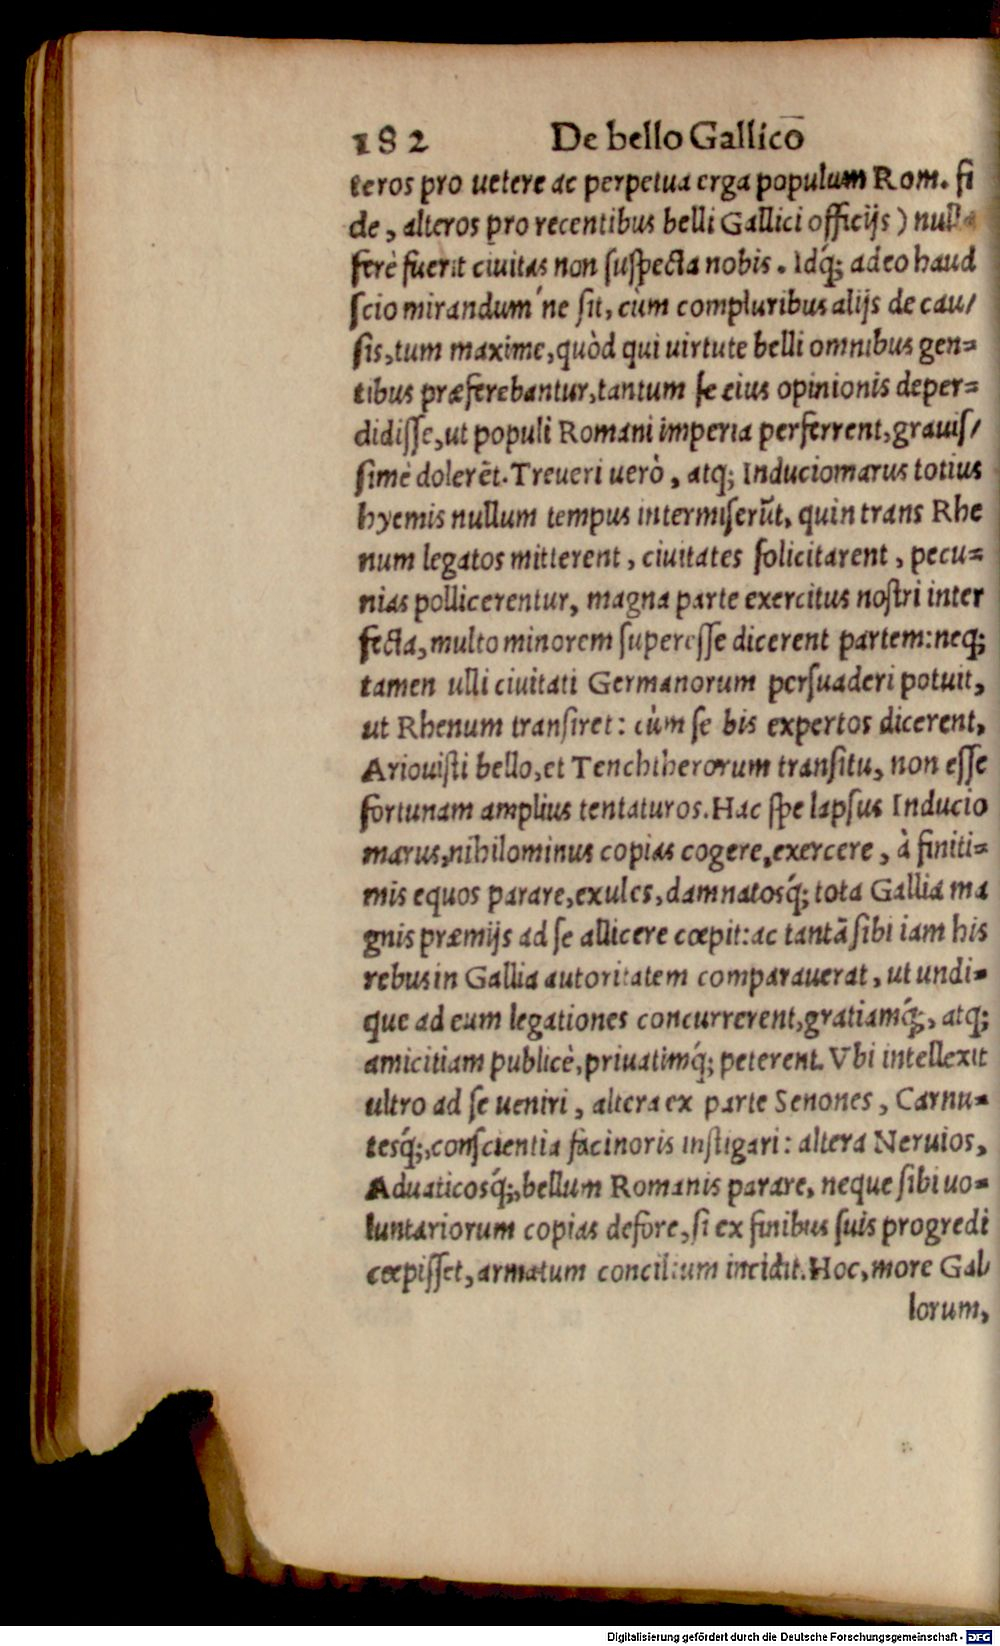 182 De bello Gallicō
teros pro uetere ac perpetua erga populum Rom. fi
de, alteros pro recentibus belli Gallici officijs) nulla
ferè fuerit ciuitas non suspecta nobis. Idq́; adeo haud
scio mirandum´ne sit, cùm compluribus alijs de cau/
sis, tum maxime, quòd qui uirtute belli omnibus gen=
tibus præferebantur, tantum se eius opinionis deper=
didisse, ut populi Romani imperia perferrent, grauis/
simè dolerēt. Treueri uerò, atq; Induciomarus totius
hyemis nullum tempus intermiserūt, quin trans Rhe
num legatos mitterent, ciuitates solicitarent, pecu=
nias pollicerentur, magna parte exercitus nostri inter
fecta, multo minorem superesse dicerent partem: neq;
tamen ulli ciuitati Germanorum persuaderi potuit,
ut Rhenum transiret: cùm se bis expertos dicerent,
Ariouisti bello, et Tenchtherorum transitu, non esse
fortunam amplius tentaturos. Hac spe lapsus Inducio
marus, nihilominus copias cogere, exercere, à finiti=
mis equos parare, exules, damnatosq́; tota Gallia ma
gnis præmijs ad se allicere cœpit: ac tantā sibi iam his
rebus in Gallia autoritatem comparauerat, ut undi=
que ad eum legationes concurrerent, gratiamq́;, atq;
amicitiam publicè, priuatimq́; peterent. Vbi intellexit
ultro ad se ueniri, altera ex parte Senones, Carnu=
tesq́;, conscientia facinoris instigari: altera Neruios,
Aduaticosq́;, bellum Romanis parare, neque sibi uo=
luntariorum copias defore, si ex finibus suis progredi
cœpisset, armatum concilium incidit. Hoc, more Gal/
lorum,
Digitalisierung gefördert durch die Deutsche Forschungsgemeinschaft - DFG